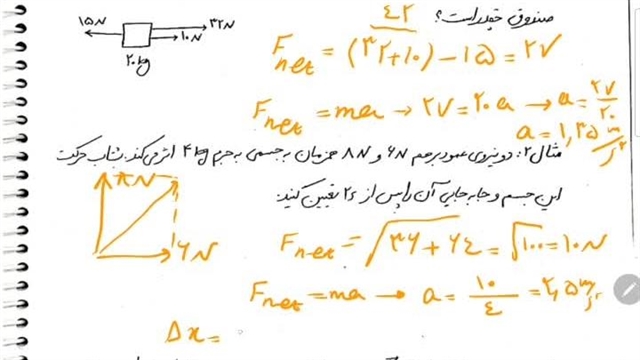 صندوق چقدر است؟ ۴۲
۱۵N ۳۲N
۱۰N
۲۰kg
Fnet = (۳۲+۱۰) - ۱۵ = ۲۷
Fnet = ma → ۲۷ = ۲۰a → a = ۲۷/۲۰
a = ۱,۳۵ m/s²
مثال ۲: دو نیروی عمود برهم ۶N و ۸N همزمان به جسمی به جرم ۴kg اثر می‌کند. شتاب حرکت
این جسم و جابه‌جایی آن را پس از ۲s تعیین کنید:
۸N
۶N
Fnet = √۳۶+۶۴ = √۱۰۰ = ۱۰N
Fnet = ma → a = ۱۰/۴ = ۲,۵ m/s²
Δx =